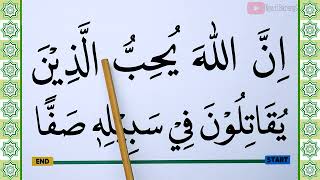 اِنَّ اللهَ يُحِبُّ الَّذِيْنَ
يُقَاتِلُوْنَ فِيْ سَبِيْلِهٖ صَفًّا
END START